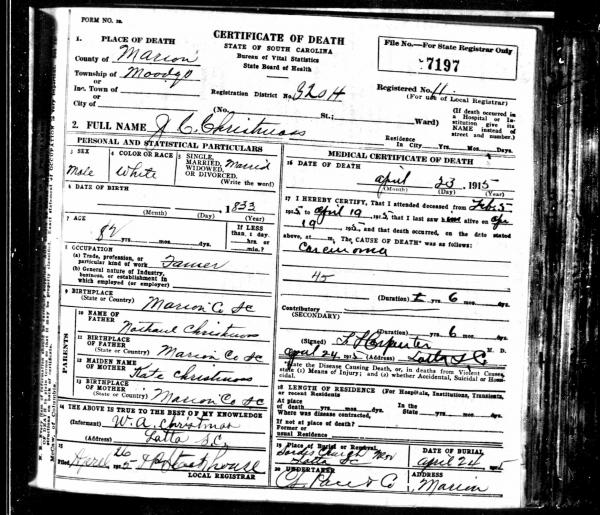 FORM NO.
CERTIFICATE OF DEATH
STATE OF SOUTH CAROLINA
Bureau of Vital Statistics
State Board of Health
File No.—For State Registrar Only
7197
1. PLACE OF DEATH
County of Marion
Township of
or
Inc. Town of
or
City of
Registration District No. 3204
Registered No. 11
(For use of Local Registrar)
(No. St.; Ward)
(If death occurred in a Hospital or Institution give its NAME instead of street and number.)
2. FULL NAME J C Christmas
Residence
In City Yrs. Mos. Days
PERSONAL AND STATISTICAL PARTICULARS
3 SEX
Male
4 COLOR OR RACE
White
5 SINGLE, MARRIED, WIDOWED, OR DIVORCED. (Write the word)
Married
6 DATE OF BIRTH
1833
(Month) (Day) (Year)
7 AGE
82 yrs. mos. days
If LESS than 1 day, hrs. or min.?
8 OCCUPATION
(a) Trade, profession, or particular kind of work Farmer
(b) General nature of Industry, business, or establishment in which employed (or employer)
9 BIRTHPLACE
(State or Country) Marion Co SC
PARENTS
10 NAME OF FATHER
Christmas
11 BIRTHPLACE OF FATHER
(State or Country) Marion Co SC
12 MAIDEN NAME OF MOTHER
Kate Christmas
13 BIRTHPLACE OF MOTHER
(State or Country) Marion Co SC
14 THE ABOVE IS TRUE TO THE BEST OF MY KNOWLEDGE
(Informant) W. A. Christmas
(Address) Latta SC.
15
Filed April 26 1915
LOCAL REGISTRAR
MEDICAL CERTIFICATE OF DEATH
16 DATE OF DEATH
April 23 1915
(Month) (Day) (Year)
17 I HEREBY CERTIFY, That I attended deceased from Feb 5
1915 to April 19 1915 that I last saw alive on Apr
19 1915, and that death occurred, on the date stated
above, at m. The CAUSE OF DEATH* was as follows:
Carcinoma
45
(Duration) yrs. 6 mos. dys.
Contributory
(SECONDARY)
(Duration) yrs. 6 mos. dys.
(Signed) Carpenter M. D.
April 24 1915 (Address) Latta S C
State the Disease Causing Death, or, in deaths from Violent Causes, state (1) Means of Injury; and (2) whether Accidental, Suicidal or Homicidal.
18 LENGTH OF RESIDENCE (For Hospitals, Institutions, Transients, or recent Residents
At place of death yrs. mos. days In the State yrs. mos. dys.
Where was disease contracted,
If not at place of death?
Former or usual Residence
19 Place of Burial or Removal
Latta SC
DATE OF BURIAL
April 24 1915
20 UNDERTAKER
Pace & Co
ADDRESS
Marion